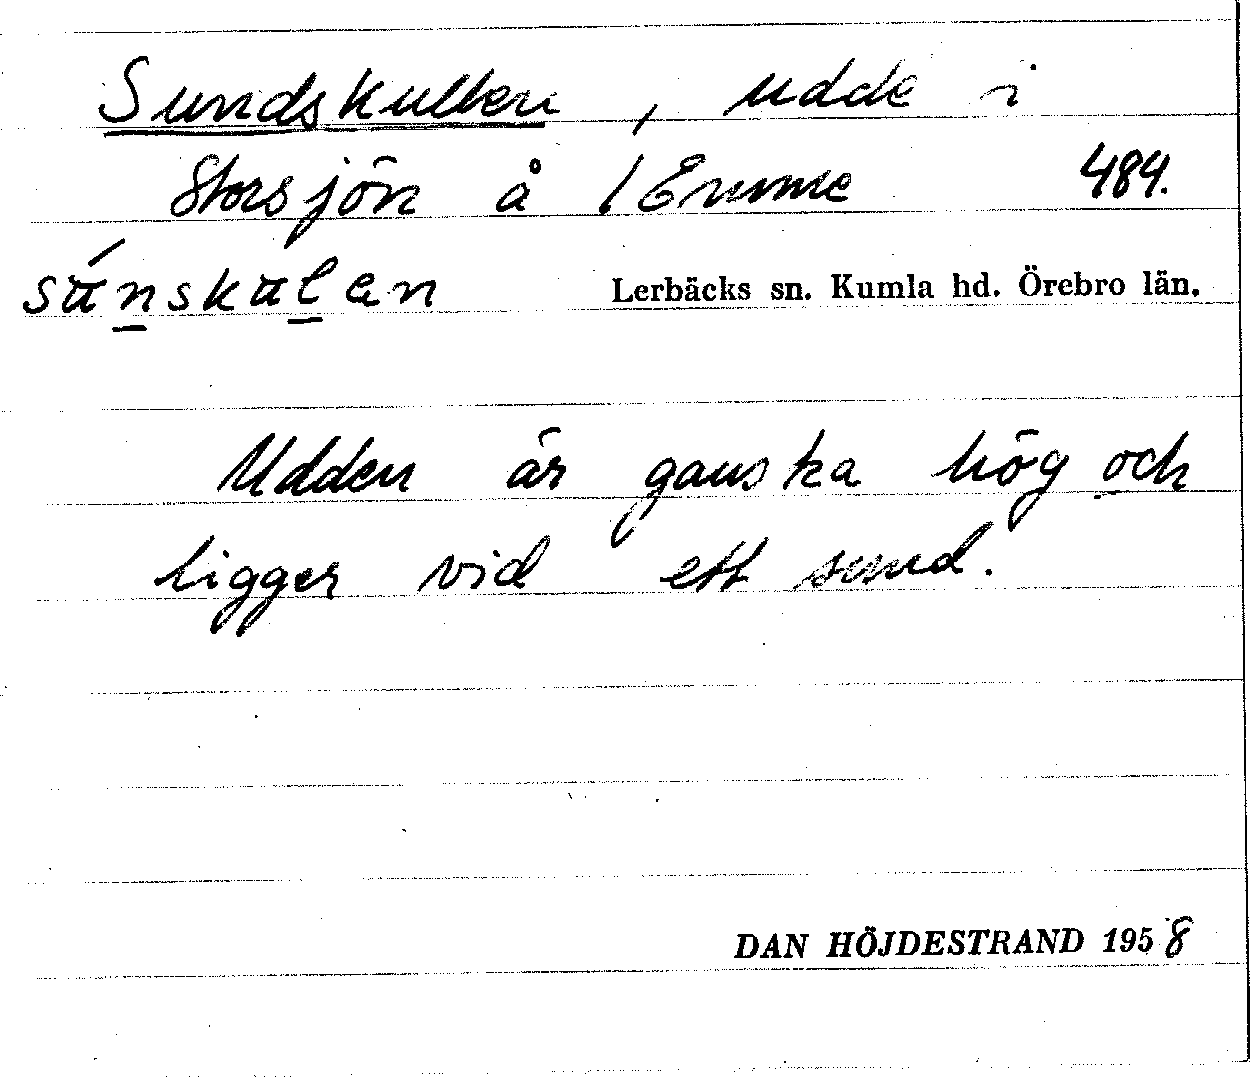 Sundskullen, udde i
Storsjön å 1 Emme 484.
sú̵n̲sku̵l̲an Lerbäcks sn. Kumla hd. Örebro län.
Udden är ganska hög och
ligger vid ett sund.
DAN HÖJDESTRAND 1958